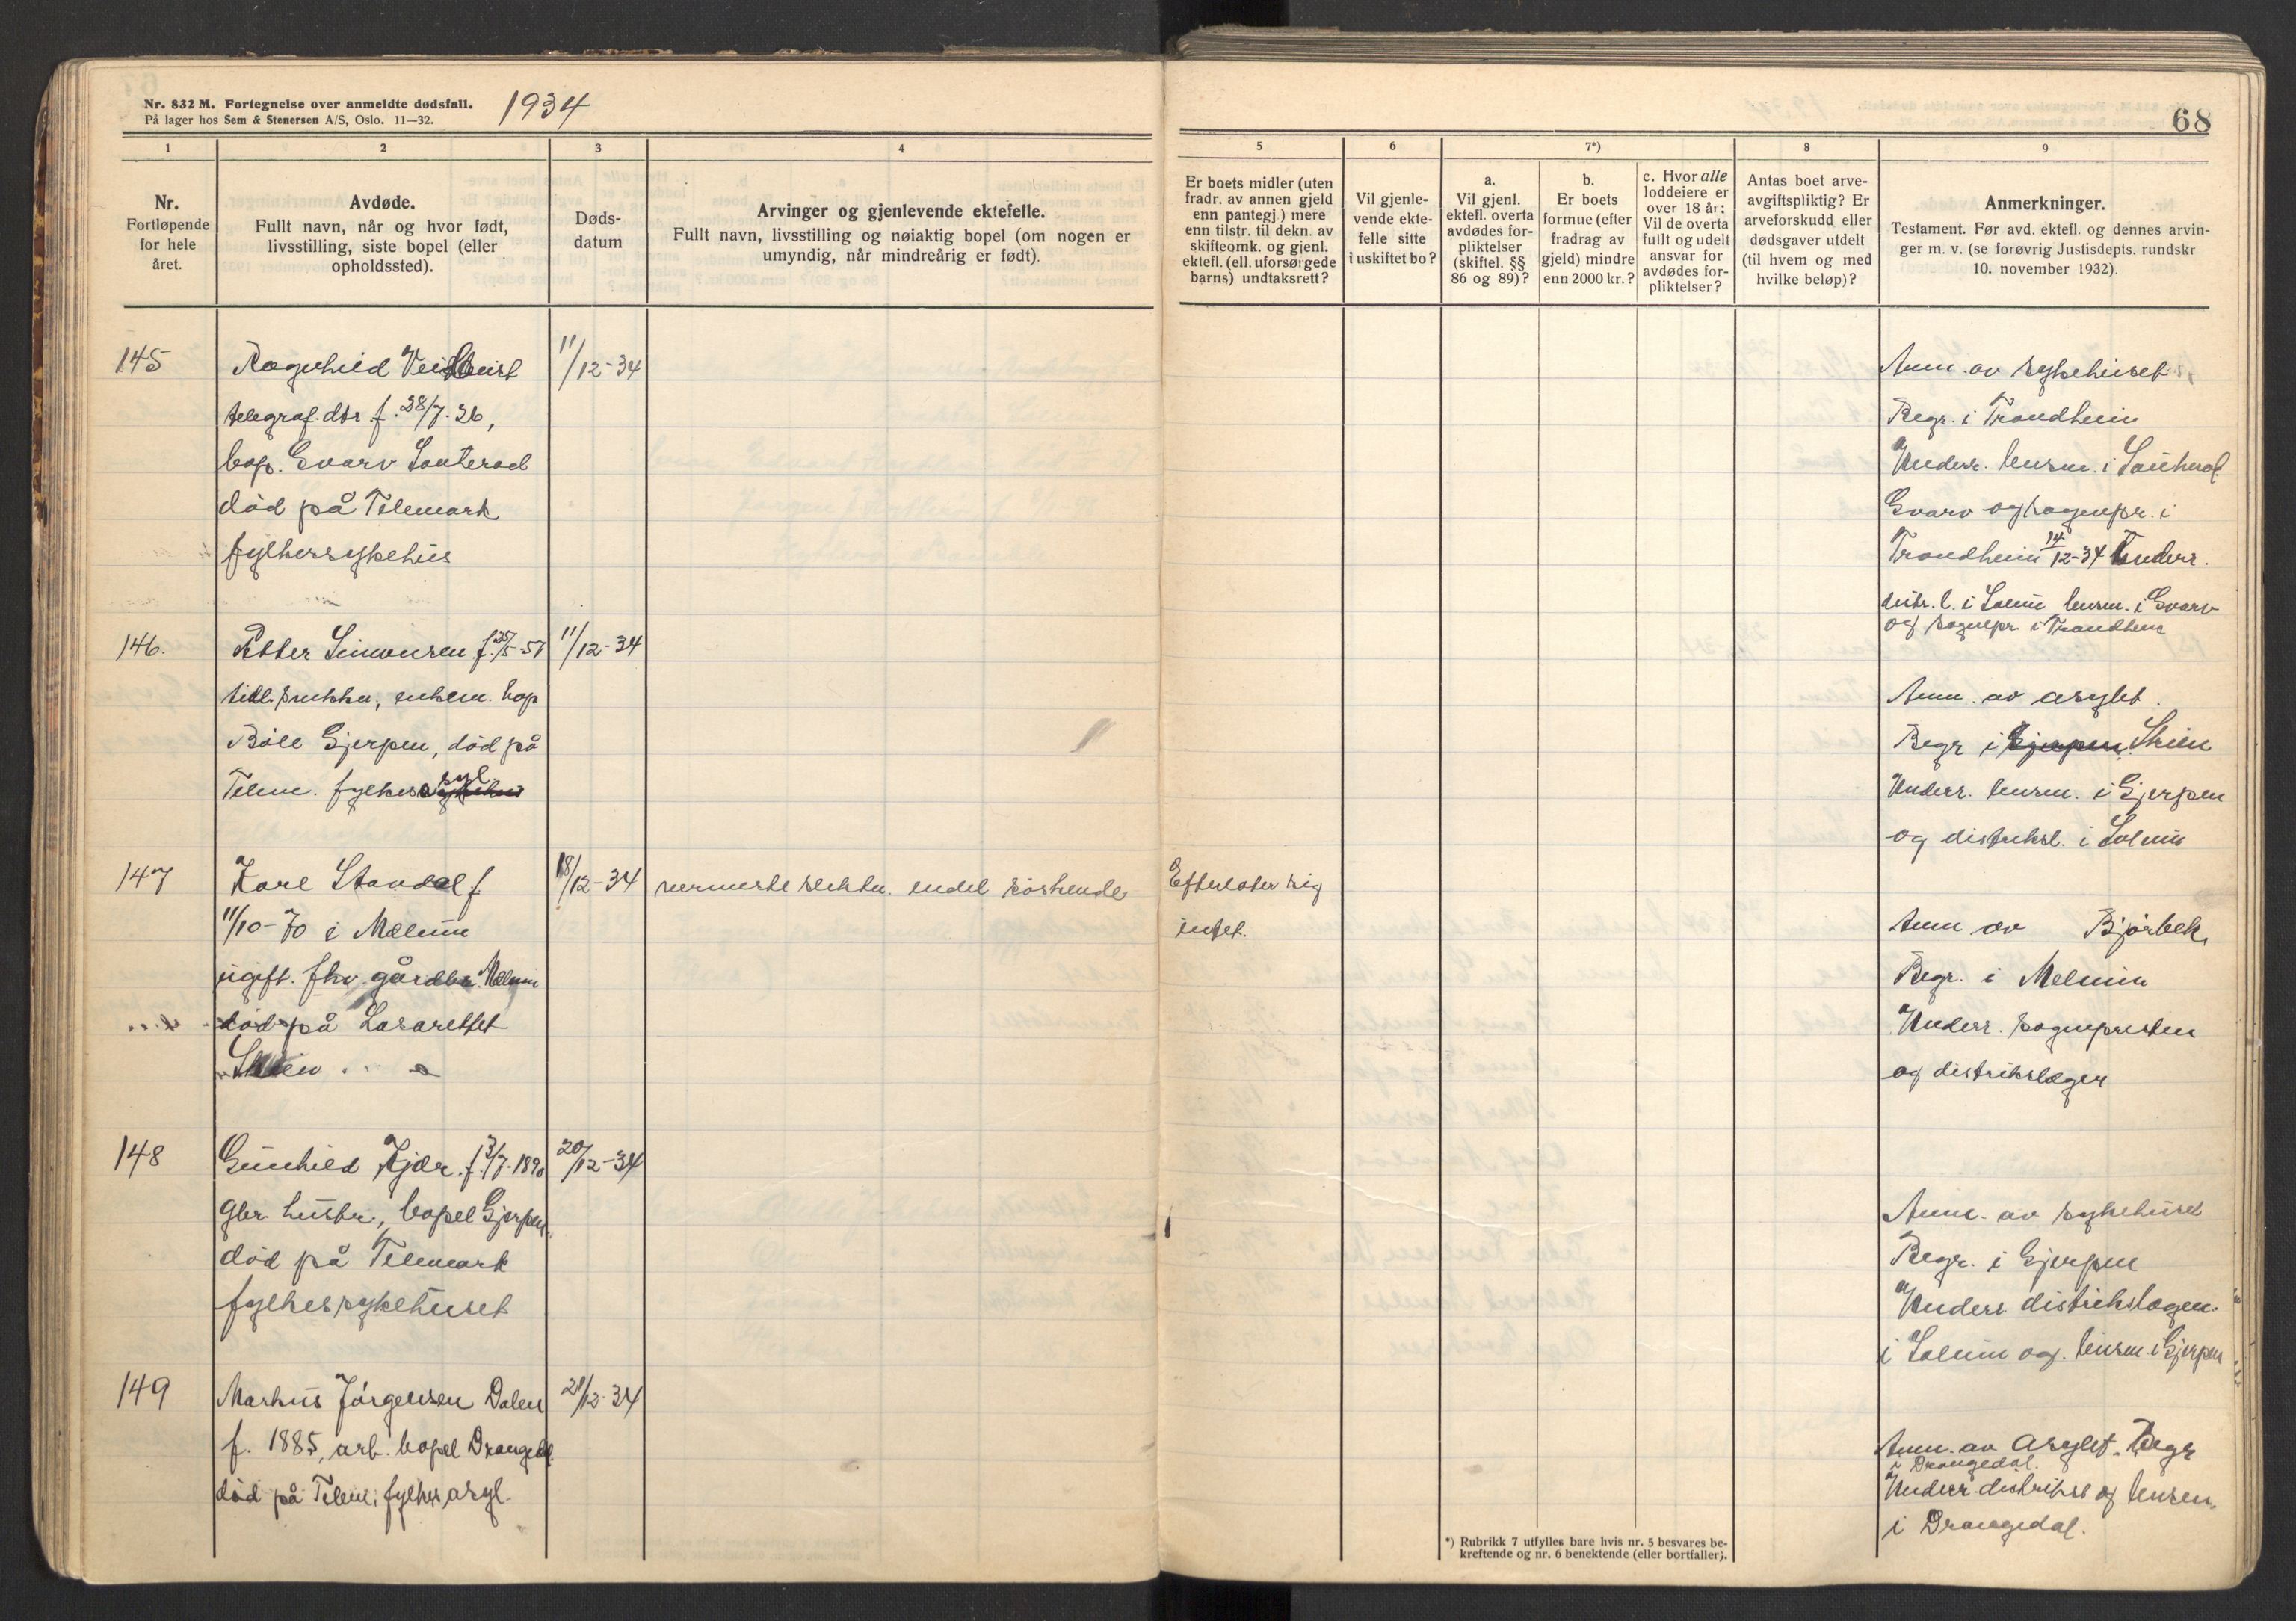 Nr. 832 M. Fortegnelse over anmeldte dødsfall.
På lager hos Sem & Stenersen A/S, Oslo. 11—32.
1934
1
2
3
4
Nr.
Fortløpende
for hele
året.
Avdøde.
Fullt navn, når og hvor født,
livsstilling, siste bopel (eller
opholdssted).
Døds-
datum
Arvinger og gjenlevende ektefelle.
Fullt navn, livsstilling og nøiaktig bopel (om nogen er
umyndig, når mindreårig er født).
145
Ragnhild
telegraf. dtr f. 28/7. 26,
bop. Gvarv
død på Telemark
fylkessykehus
11/12-34
146.
Petter Simonsen f. 25/5-57
tidl. enkem. bop
Bøle Gjerpen, død på
Telem. fylkesasyl
11/12-34
147
Karl Standal f.
11/10-70 i Melum
ugift. fhv. gårdbr. Melum
død på Lasarettet
Skien
18/12-34
nermeste slektn. endel søskende
148
Gunhild Kjær f. 3/7-1890
gbr. hustr., bopel Gjerpen
død på Telemark
fylkessykehuset
20/12-34
149
Markus Jørgensen Dalen
f. 1885, arb. bopel Drangedal
død på Telem. fylkesasyl.
21/12-34
68
5
6
7*)
8
9
Er boets midler (uten
fradr. av annen gjeld
enn pantegj) mere
enn tilstr. til dekn. av
skifteomk. og gjenl.
ektefl. (ell. uforsørgede
barns) undtaksrett?
Vil gjenle-
vende ekte-
felle sitte
i uskiftet bo?
a.
Vil gjenl.
ektefl. overta
avdødes for-
pliktelser
(skiftel. §§
86 og 89)?
b.
Er boets
formue (efter
fradrag av
gjeld) mindre
enn 2000 kr.?
c. Hvor alle
loddeiere er
over 18 år:
Vil de overta
fullt og udelt
ansvar for
avdødes for-
pliktelser?
Antas boet arve-
avgiftspliktig? Er
arveforskudd eller
dødsgaver utdelt
(til hvem og med
hvilke beløp)?
Anmerkninger.
Testament. Før avd. ektefl. og dennes arvin-
ger m. v. (se forøvrig Justisdepts. rundskr
10. november 1932).
Anm. av sykehuset
Begr. i Trondheim
Underr. lensm. i Sauherad
Gvarv og sognepr. i
Trondheim 14/12-34 Underr.
distr. l. i Solum lensm. i Gvarv
og sognepr. i Trondheim
Anm. av asylet
Begr i Gjerpen Skien
Underr. lensm. i Gjerpen
og distriksl. i Solum
Efterlater sig
intet.
Anm av Bjørbek
Begr. i Melum
Underr. sognepresten
og distrikslægen
Anm. av sykehuset
Begr. i Gjerpen
Underr distrikslægen
i Solum og lensm. i Gjerpen
Anm. av Asylet. Begr
i Drangedal.
Underr. distriksl og lensm.
i Drangedal.
*) Rubrikk 7 utfylles bare hvis nr. 5 besvares be-
kreftende og nr. 6 benektende (eller bortfaller).